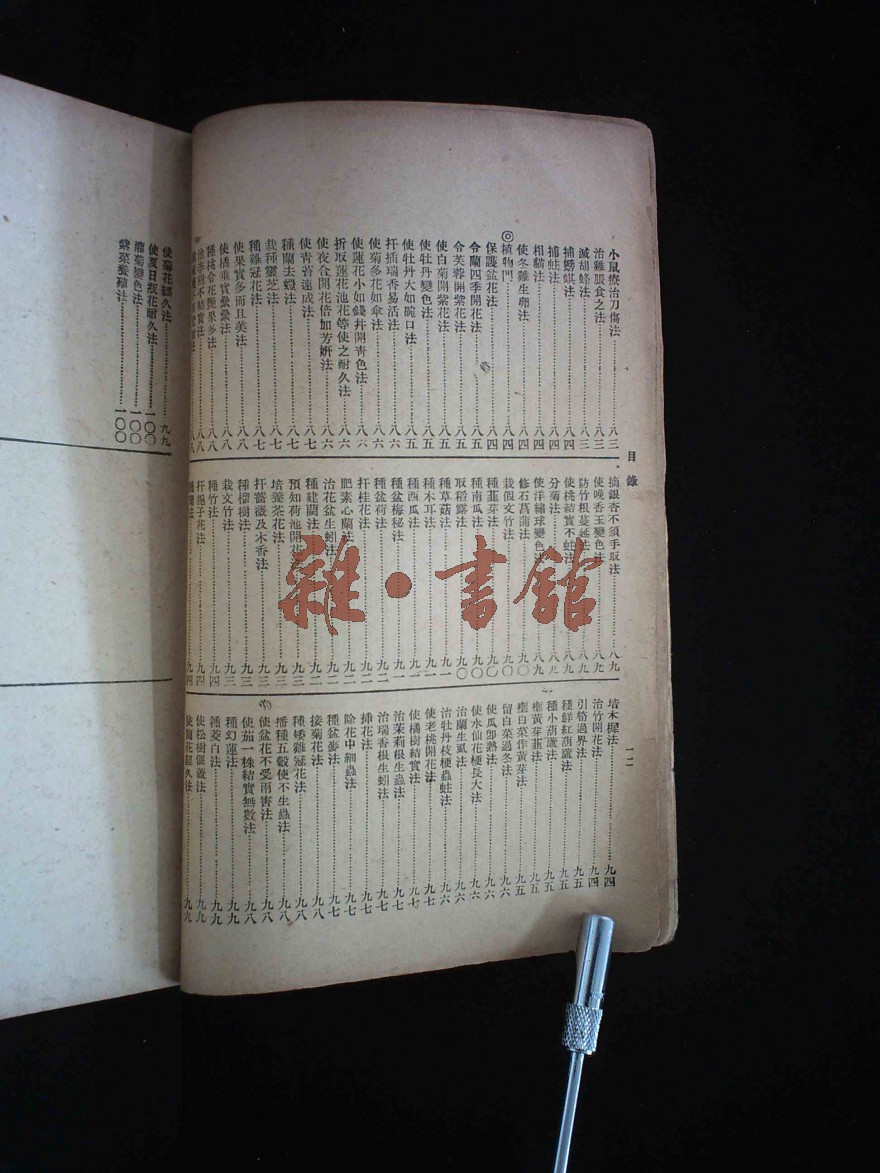 目錄
一二
小鼠療治刀傷法……八三
治雞脹食之法……八三
滅胡蜂法……八三
捕螞蜞法……八四
捕蛀法……八四
相貓法……八四
使冬雞生卵法……八四
◎植物門
保護盆花法……八四
令蘭四季開花法……八五
令芙蓉開紫花法……八五
使白菊開紫花法……八五
使牡丹變色法……八五
使牡丹大如碗口法……八五
扦插瑞香易活法……八六
使菊多花如傘法……八六
使蓮花小如錢幷開靑色法……八六
折取蓮花池花等使之耐久法……八六
使夜合開花倍加芳妍法……八六
使靑苔速成法……八七
種蘭去蟻法……八七
栽種靈芝法……八七
種雞冠花法……八七
使果實多而且美法……八八
使橘垂實纍纍法……八八
種桃令花艷果多法……八八
治李樹不結實法……八八
摘銀杏不須手取法……八九
使晚香玉變色法……八九
防竹根蔓延法……八九
使桃結實不蛀法……八九
分菊法……八九
使洋繡球變色法……八九
修石菖蒲法……九〇
栽假文竹法……九〇
種韮芽法……九〇
種南瓜法……九〇
取稻露法……九〇
種草菇法……九一
種木耳法……九一
種西瓜法……九一
種盆梅秘法……九一
種盆荷法……九二
扦桂花法……九二
肥素心蘭法……九二
治花盆生蚓法……九二
種建蘭法……九二
預知荷池開花法……九三
培養茶花法……九三
扦薔薇及木香法……九三
種榴樹法……九三
栽文竹法……九三
種竹法……九四
扦梔子花法……九四
種蘭法……九四
培木樨法……九四
治竹開花法……九四
引筍過界法……九五
種鮮紅葫蘆法……九五
種小葫蘆法……九五
壅黃芽韮法……九五
壅白菜作黃芽法……九五
留白菜過冬法……九六
使瓜卽熟法……九六
使水仙花梗長大法……九六
治蘭生虱法……九六
治牡丹枝梗蟲蛀法……九六
使老桃開花法……九七
使橘樹結實法……九七
治茉莉根生蟲法……九七
治瑞香根生蚓法……九七
插花法……九七
除花中細蟲法……九七
種盆麥法……九七
接菊花法……九八
種矮雞冠花法……九八
播種五穀使不生蟲法……九八
使盆花不受雨害法……九八
使茄一株結實無數法……九九
種幻蓮法……九九
種茭白法……九九
使松樹偃蓋法……九九
使蘭花經久法……九九
使菊花經久法……九九
使夏日瓶花耐久法……一〇〇
菊變色法……一〇〇
法……一〇〇
雜·書館